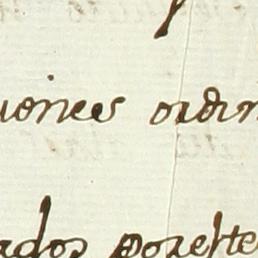 uones ordin
ados por este